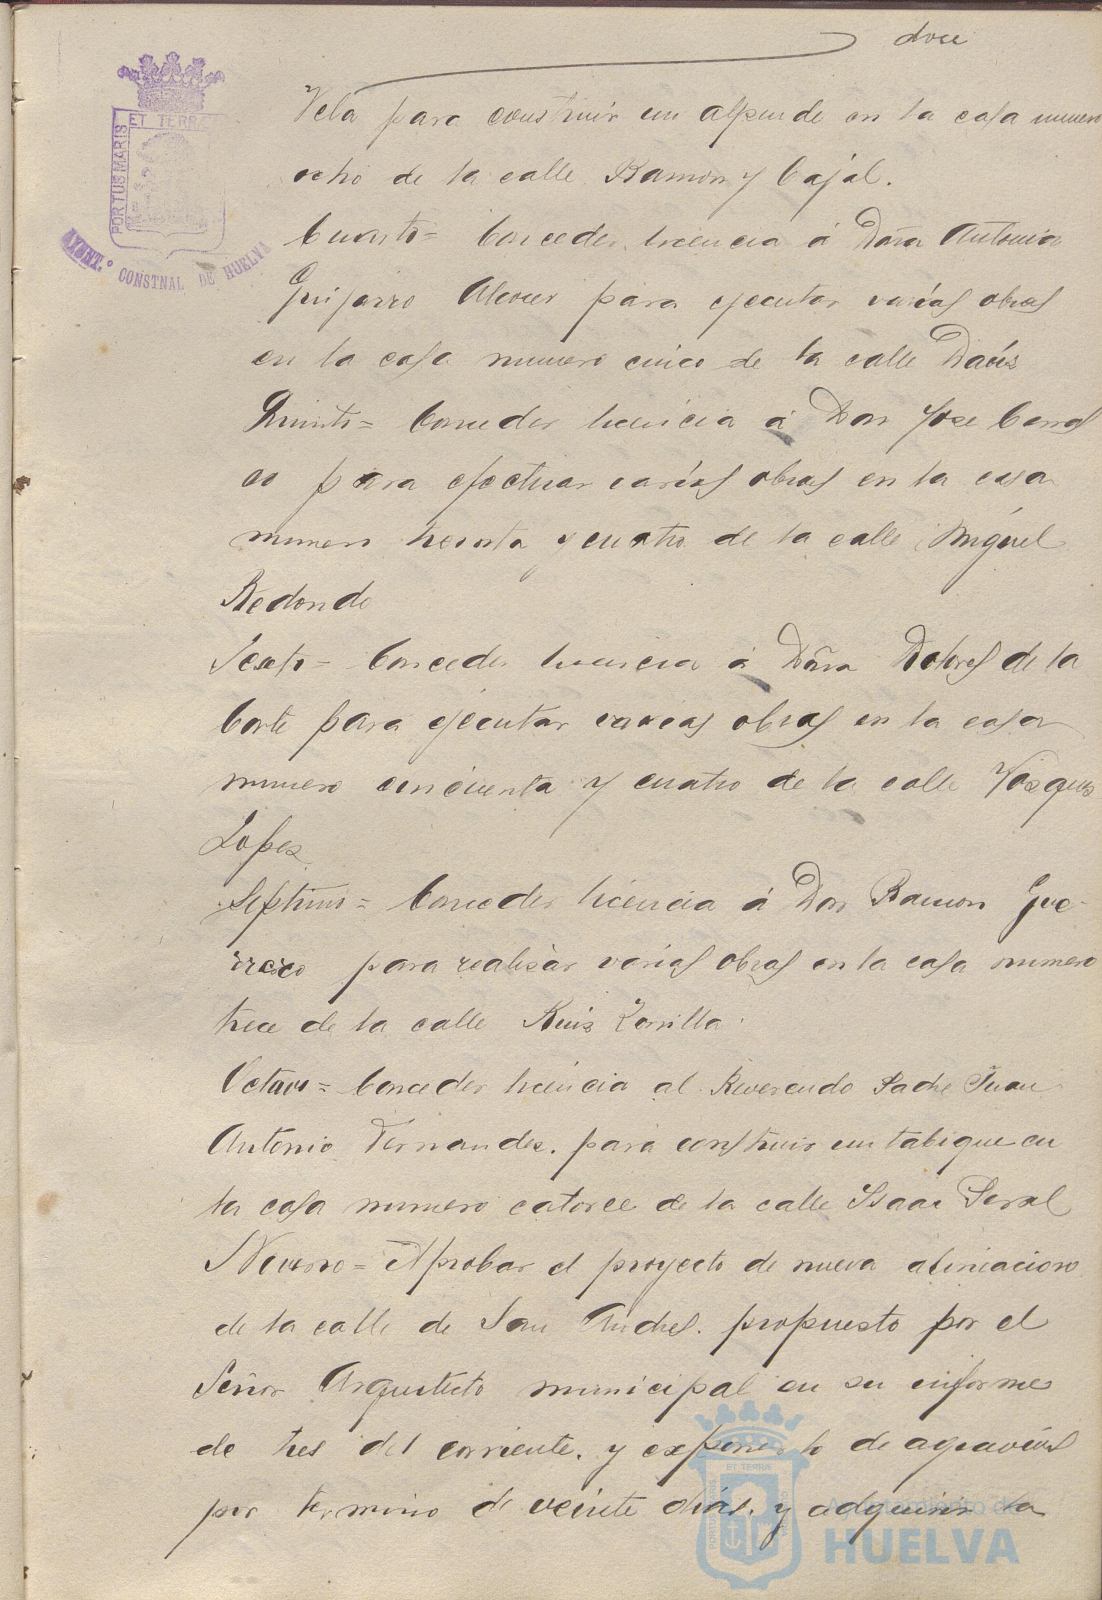 doce
Vela para construir un alpende en la casa numero
ocho de la calle Ramon y Cajal.
Cuarto = Conceder licencia á Doña Antonia
Guijarro Alcocer para ejecutar varias obras
en la casa numero cinco de la calle Daóis
Quinto = Conceder licencia á Don Jose Carras
co para efectuar varias obras en la casa
numero treinta y cuatro de la calle Miguel
Redondo
Sexto = Conceder licencia á Doña Dolores de la
Corte para ejecutar varias obras en la casa
numero cincuenta y cuatro de la calle Vasques
Lopez
Septimo = Conceder licencia á Don Ramon Gue-
rrero para realisar varias obras en la casa numero
trece de la calle Ruiz Zorrilla.
Octavo = Conceder licencia al Reverendo Padre Juan
Antonio Fernandez. para construir un tabique en
la casa numero catorce de la calle Isaac Peral
Noveno = Aprobar el proyecto de nueva alineacion
de la calle de San Andres. propuesto por el
Señor Arquitecto municipal en su informe
de tres del corriente. y exponerlo de agravios
por termino de veinte dias. y adquirir la
ET TERRAE
PORTUS MARIS
AYUNT.º CONSTNAL DE HUELVA
Ayuntamiento de
HUELVA